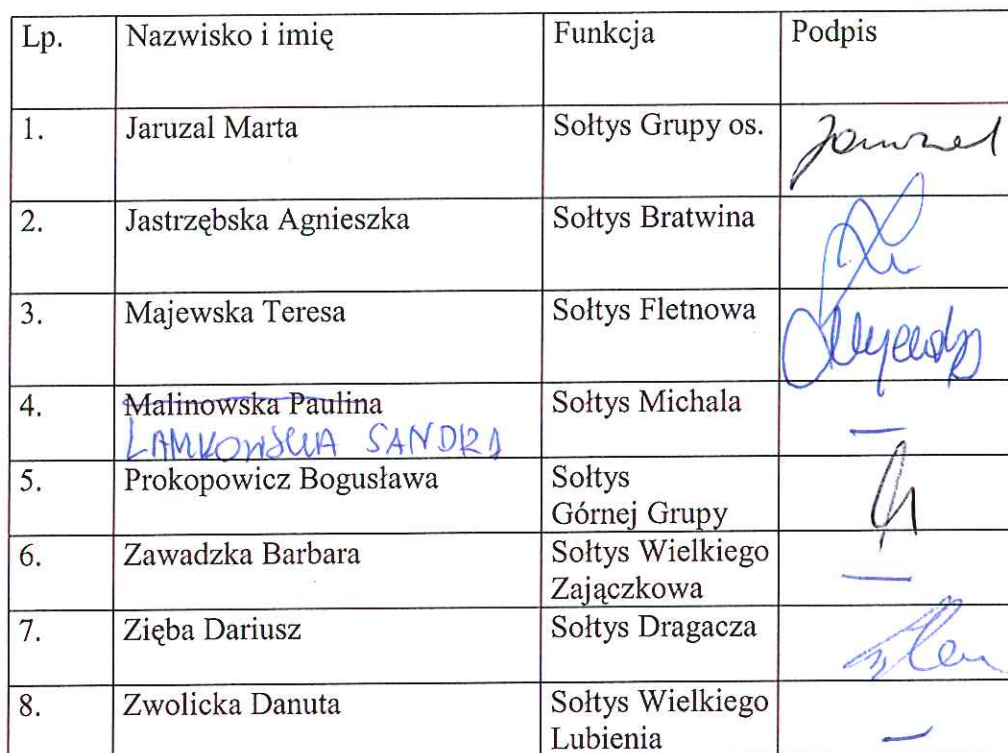 Lp. Nazwisko i imię Funkcja Podpis
1. Jaruzal Marta Sołtys Grupy os.
2. Jastrzębska Agnieszka Sołtys Bratwina
3. Majewska Teresa Sołtys Fletnowa
4. Malinowska Paulina Sołtys Michala —
LAMKOWSKA SANDRA
5. Prokopowicz Bogusława Sołtys
Górnej Grupy
6. Zawadzka Barbara Sołtys Wielkiego
Zajączkowa —
7. Zięba Dariusz Sołtys Dragacza
8. Zwolicka Danuta Sołtys Wielkiego
Lubienia —